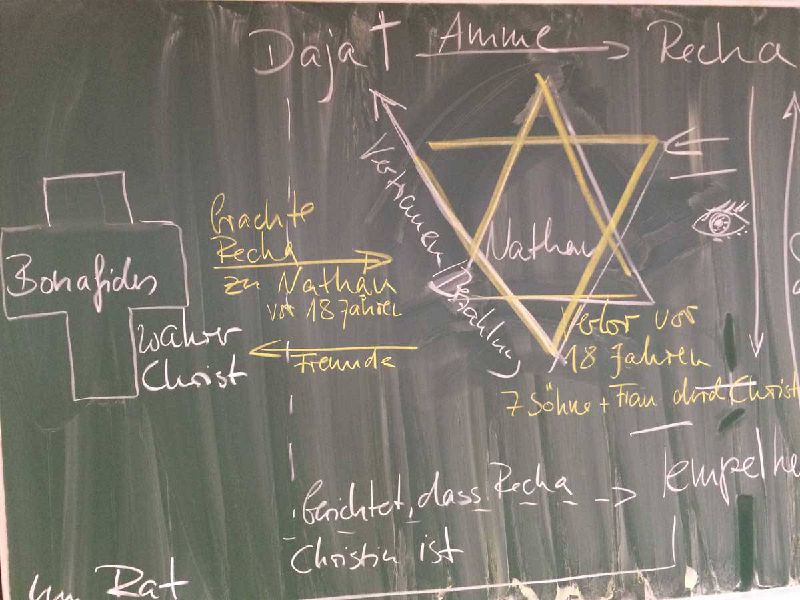 Daja† Amme Recha
Vertrauen
Bezahlung
Nathan
brachte
Recha
zu Nathan
vor 18 Jahren
Freunde
Bonafides
wahrer
Christ
verlor vor
18 Jahren
7 Söhne + Frau durch Christ
berichtet, dass Recha
Christin ist
Tempelhe
um Rat